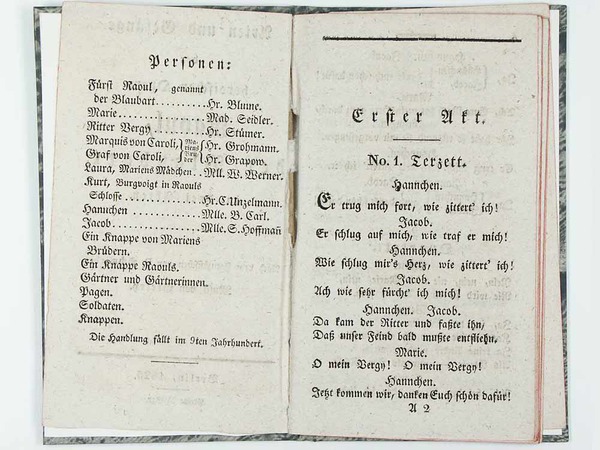 Personen:
Fürst Raoul, genannt
der Blaubart..........Hr. Blume.
Marie..................Mad. Seidler.
Ritter Vergy..........Hr. Stümer.
Marquis von Caroli,} Ma- {Hr. Grohmann.
Graf von Caroli, } riens Brü- der {Hr. Grapow.
Laura, Mariens Mädchen. Mll. W. Werner.
Kurt, Burgvoigt in Raouls
Schlosse.................Hr. C. Unzelmann.
Hannchen .............Mlle. B. Carl.
Jacob....................Mlle. S. Hoffmañ
Ein Knappe von Mariens
Brüdern.
Ein Knappe Raouls.
Gärtner und Gärtnerinnen.
Pagen.
Soldaten.
Knappen.
Die Handlung fällt im 9ten Jahrhundert.
Erster Akt.
No. 1. Terzett.
Hannchen.
Er trug mich fort, wie zittert' ich!
Jacob.
Er schlug auf mich, wie traf er mich!
Hannchen.
Wie schlug mir's Herz, wie zittert' ich!
Jacob.
Ach wie sehr fürcht' ich mich!
Hannchen. Jacob.
Da kam der Ritter und faßte ihn,
Daß unser Feind bald mußte entfliehn.
Marie.
O mein Vergy! O mein Vergy!
Hannchen.
Jetzt kommen wir, danken Euch schön dafür!
A 2